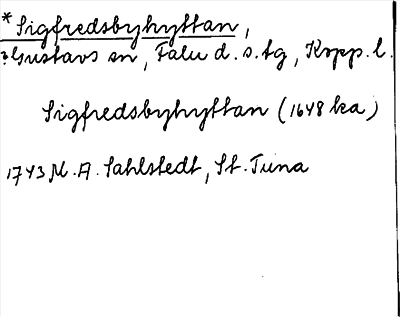 *Sigfredsbyhyttan,
?Gustavs sn, Falu d.s. tg, Kopp. l.
Sigfredsbyhyttan (1648 ka)
1743 M. A. Sahlstedt, St. Tuna